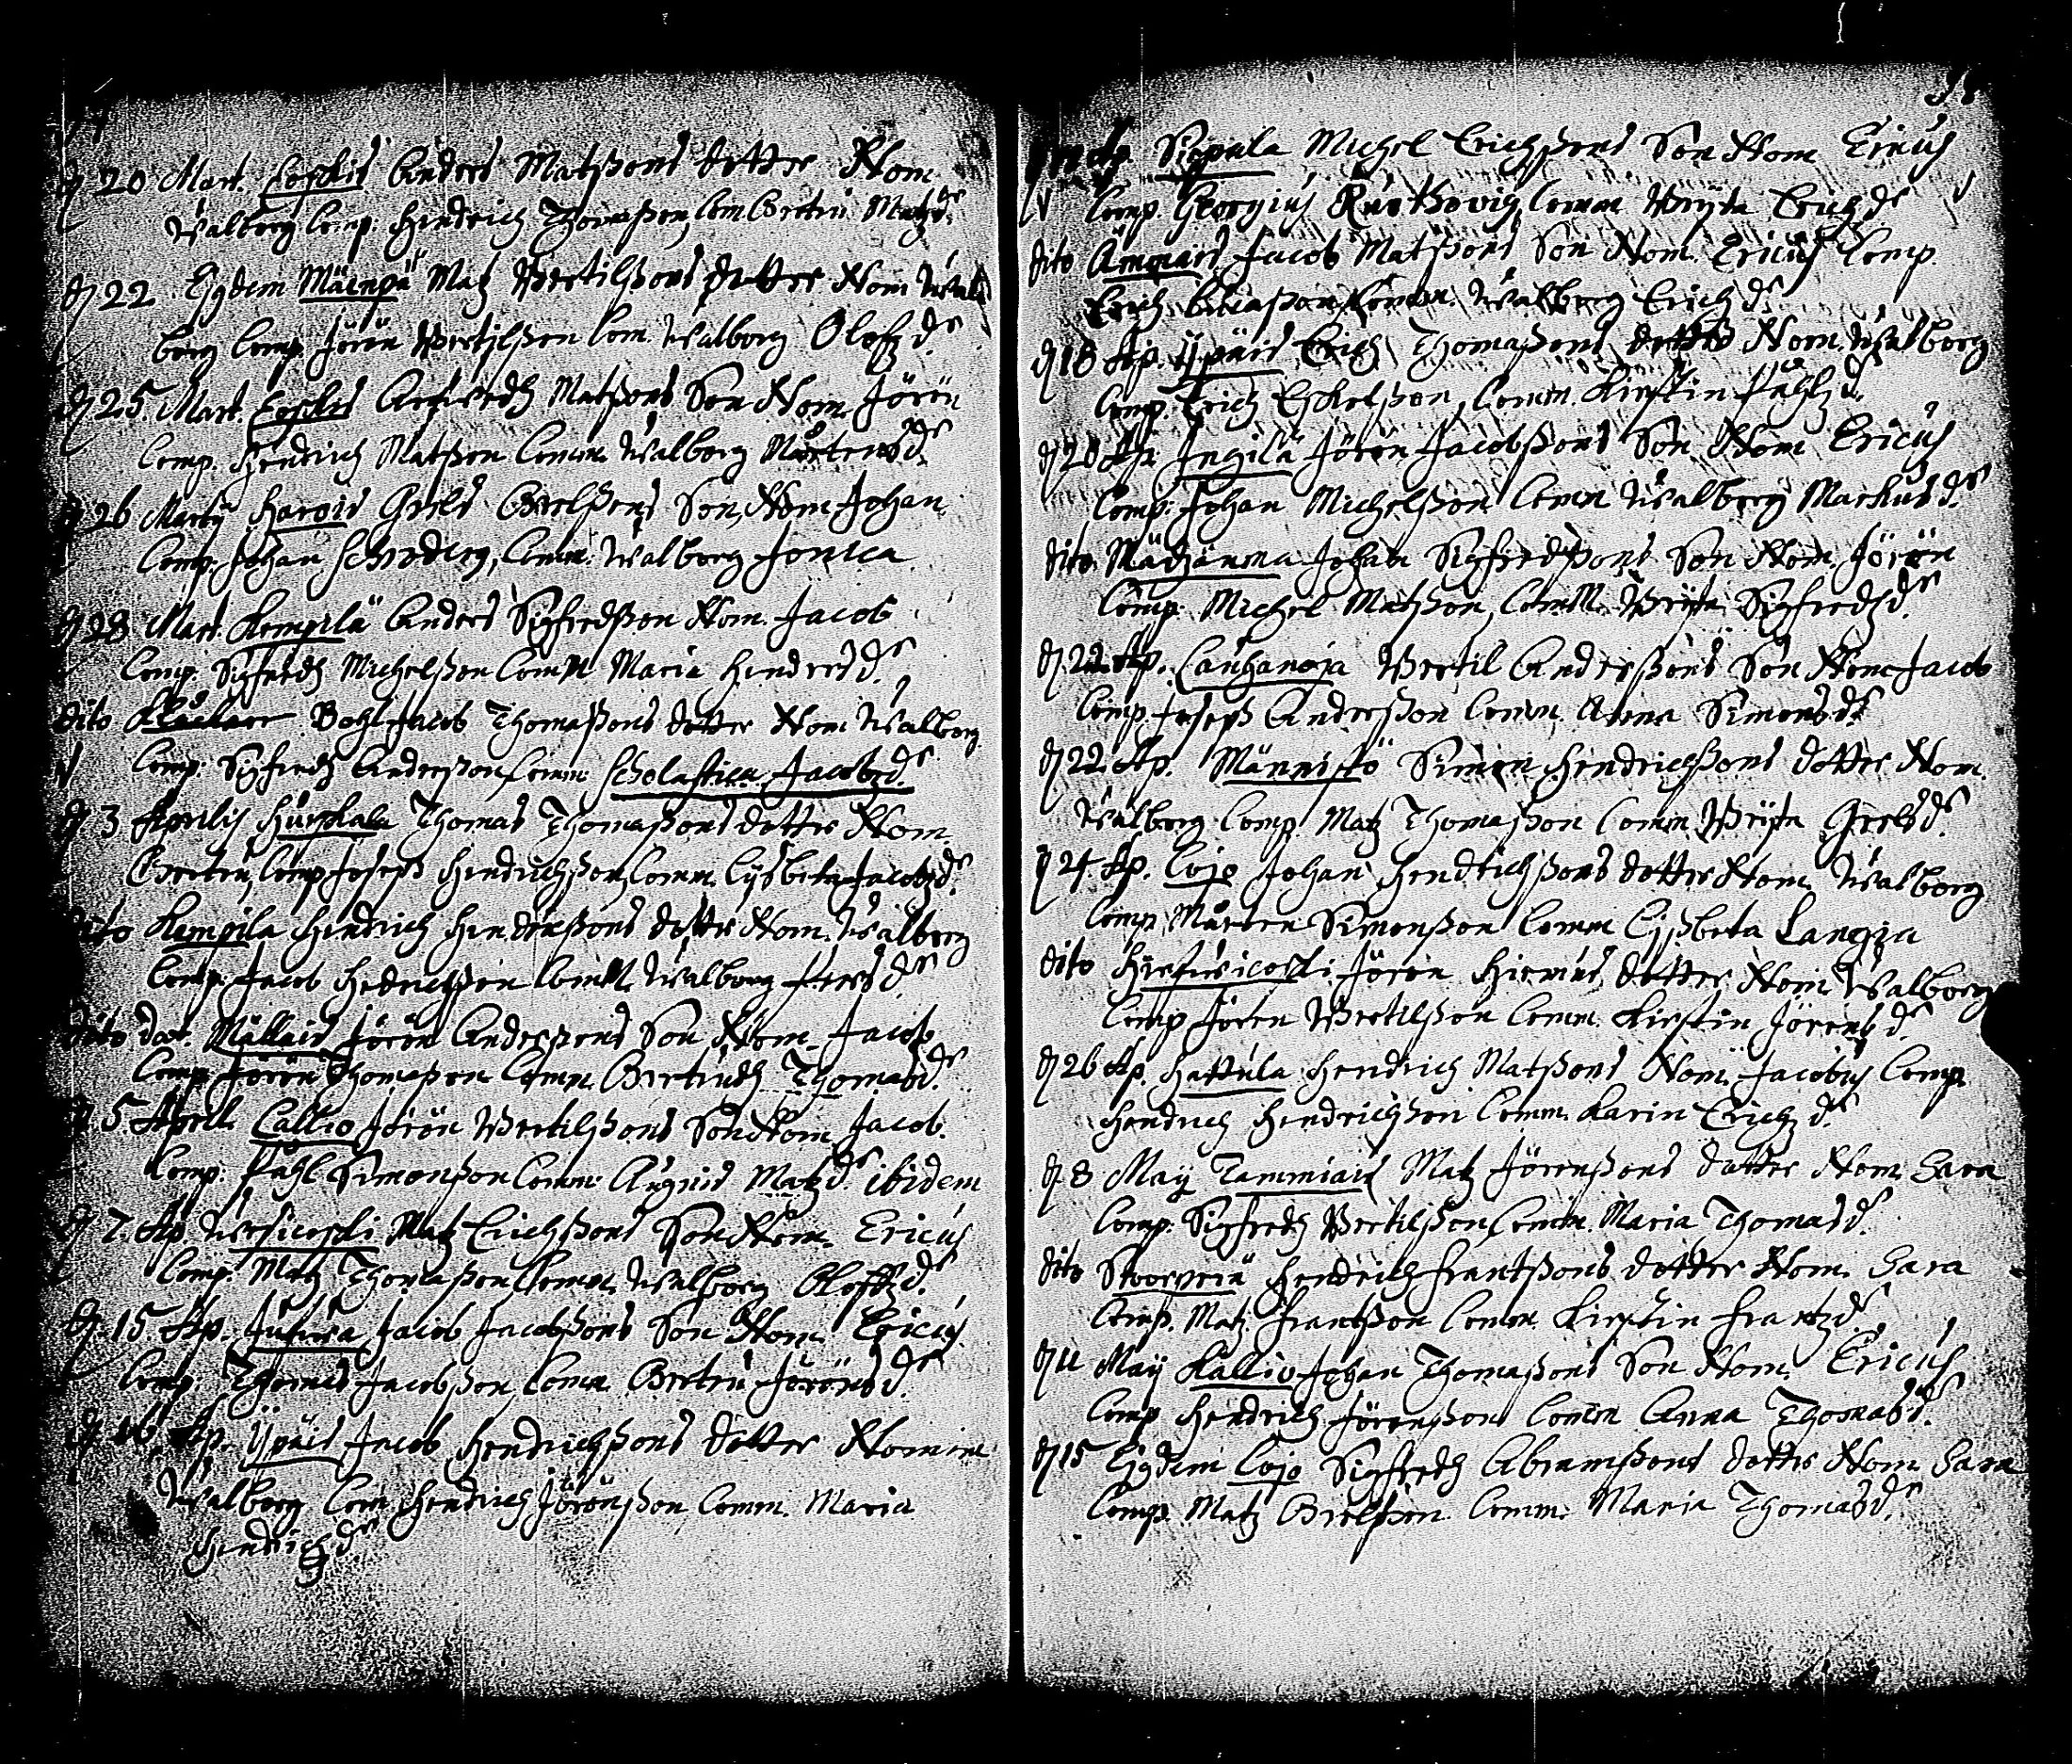 d 20 Mart. Eoskis Anders Matßons dotter Nom
Walborg Comp. Hendrich Thomaßon, Com Bertru Matzd.
d 22 Eijdem Mäenpä Matz Bertilßons dotter Nom Wal
borg Comp. Jörön Bertilßon Com. Walborg Olofzd.
d 25. Mart. Matßons Son Nom Jörön
Comp. Hendrich Matßon Comm. Walborg Mårtensd.
26 Martij Harois Grels Grelßons Son, Nom Johan
Comp. Johan Comm. Walborg
d 28 Mart. Kempilä Anders Sigfredßon Nom. Jacob
Comp. Sigfredh Michelßon Comm Maria Hendersd.
dito Jacob Thomaßons dotter Nom Walborg
Comp. Sigfredh Anderßon Comm. Scholastica Jacobzd.
d 3 Aprilis Hurskala Thomas Thomaßons dotter Nom
Bertru, Comp Joseph Hendrichßon, Comm. Lijsbeta Jacobzd.
dito Kempila Hendrich Hendrichßons dotter Nom. Walborg
Comp. Jacob Hedrichßon Comm Walborg d.
dito dat. Mällais Jörön Anderßons Son Nom. Jacob
Comp Jörön Thomaßon Comm. Bertrudh Thomasd.
d 5. April. Callio Jörön Bertilßons Son Nom Jacob.
Comp. Påhl Simonßon Comm. Augnis Matzd. ibidem
d 7. Ap. Matz Erichßons Son Nom. Ericus
Comp. Matz Thomaßon Comm. Walborg Oloffzd.
d. 15. Ap. Jutura Jacob Jacobßons Son Nom. Ericus
Comp. Thomas Jacobßon, Comm Bertru Jöronsd.
d. 16 Ap. Ypäis Jacob Hendrichßons dotter Nomine
Walborg Com. Hendrich Jörönßon Comm. Maria
Hendrichzd.
Ap. Sippala Michel Erichßons Son Nom Ericus
Comp. Georgius Comm Brijta Erichzd.
dito Ämmäis Jacob Matßons Son Nom. Ericus Comp.
Erich Comm. Walborg Erichzd.
d 18 Ap. Ypäis Erich Thomaßons dotter Nom. Walborg
Comp. Erich Eskelßon, Comm. Kirstin Påhlzd.
d 20 Ap Ingilä Jörön Jacobßons Son Nom Ericus
Comp. Johan Michelßon Comm Walborg Markusd.
dito Johan Sigfredßons Son Nom. Jörön
Comp. Michel Matßon, Comm. Brijta Sigfredzd.
d. 22 Ap. Lauhanoja Bertil Anderßons Son Nom Jacob
Comp. Joseph Anderßon Comm. Anna Simonsd.
d 22. Ap. Männistö Simon Hendrichßons dotter Nom.
Walborg Comp. Matz Thomaßon Comm Brijta Grelsd.
d 24. Ap. Cojo Johan Hendrichßons dotter Nom. Walborg
Comp. Mårten Simonßon Comm Lijsbeta
dito Jörön dotter Nom. Walborg
Comp Jören Bertilßon Comm. Kirstin Jörensd.
d 26 Ap. Hattula Hendrich Matßons Nom. Jacobus Comp
Hendrich Hendrichßon Comm. Karin Erichzd.
d. 8 Maij Tammiais Matz Jörenßons dotter Nom. Sara
Comp. Sigfredh Bertilßon Comm. Maria Thomasd.
dito Hendrich Frantßons dotter Nom. Sara
Comp. Matz Frantßon Comm. Kirstin Frantzd.
d 11 Maij Kallio Johan Thomaßons Son Nom. Ericus
Comp Hendrich Jörenßons Comm Anna Thomasd.
d 15 Eijdem Cojo Sigfredh Abramßons dotter Nom Sara
Comp. Matz Grelßon Comm. Maria Thomasd.